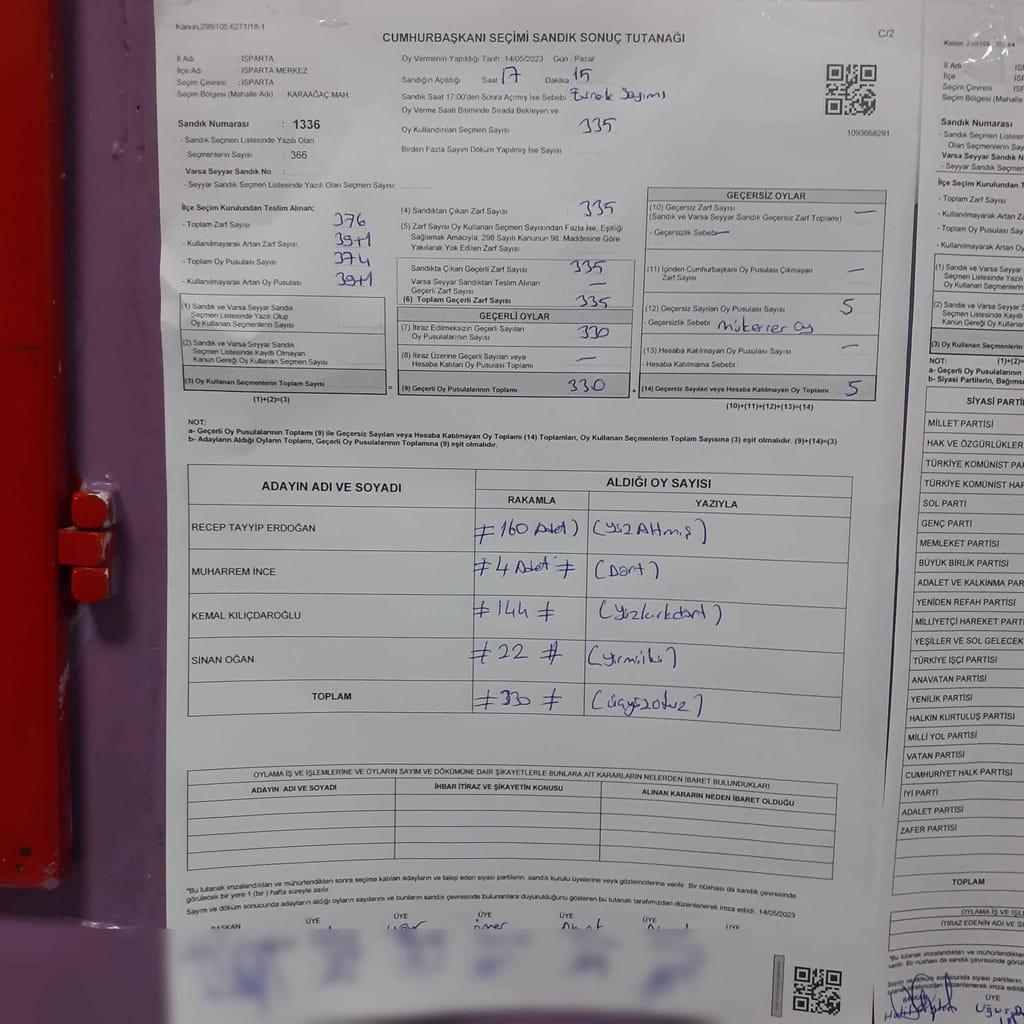 Kanun:298/105,6271/18-1
CUMHURBAŞKANI SEÇİMİ SANDIK SONUÇ TUTANAĞI
C/2
İl Adı : ISPARTA
İlçe Adı : ISPARTA MERKEZ
Seçim Çevresi : ISPARTA
Seçim Bölgesi (Mahalle Adı) KARAAĞAÇ MAH.
Sandık Numarası : 1336
- Sandık Seçmen Listesinde Yazılı Olan
Seçmenlerin Sayısı : 366
Varsa Seyyar Sandık No :
- Seyyar Sandık Listesinde Yazılı Olan Seçmen Sayısı:
Oy Vermenin Yapıldığı Tarih :14/05/2023 Gün : Pazar
Sandığın Açıldığı Saat 17 Dakika 15
Sandık Saat 17:00'den Sonra Açılmış İse Sebebi: Evrak Sayımı
Oy Verme Saati Bitiminde Sırada Bekleyen ve
Oy Kullandırılan Seçmen Sayısı 335
Birden Fazla Sayım Döküm Yapılmış İse Sayısı
1093668291
İlçe Seçim Kurulundan Teslim Alınan;
- Toplam Zarf Sayısı 376
- Kullanılmayarak Artan Zarf Sayısı 39+1
- Toplam Oy Pusulası Sayısı 374
- Kullanılmayarak Artan Oy Pusulası 39+1
(1) Sandık ve Varsa Seyyar Sandık
Seçmen Listesinde Yazılı Olup
Oy Kullanan Seçmenlerin Sayısı
(2) Sandık ve Varsa Seyyar Sandık
Seçmen Listesinde Kayıtlı Olmayan
Kanun Gereği Oy Kullanan Seçmen Sayısı
(3) Oy Kullanan Seçmenlerin Toplam Sayısı
(1)+(2)=(3)
(4) Sandıktan Çıkan Zarf Sayısı 335
(5) Zarf Sayısı Oy Kullanan Seçmen Sayısından Fazla İse, Eşitliği
Sağlamak Amacıyla, 298 Sayılı Kanunun 98. Maddesine Göre
Yakılarak Yok Edilen Zarf Sayısı
Sandıkta Çıkan Geçerli Zarf Sayısı 335
Varsa Seyyar Sandıktan Teslim Alınan
Geçerli Zarf Sayısı —
(6) Toplam Geçerli Zarf Sayısı 335
GEÇERLİ OYLAR
(7) İtiraz Edilmeksizin Geçerli Sayılan
Oy Pusulasının Sayısı 330
(8) İtiraz Üzerine Geçerli Sayılan veya
Hesaba Katılan Oy Pusulası Toplamı —
= (9) Geçerli Oy Pusulalarının Toplamı 330
GEÇERSİZ OYLAR
(10) Geçersiz Zarf Sayısı —
(Sandık ve Varsa Seyyar Sandık Geçersiz Zarf Toplamı)
- Geçersizlik Sebebi —
(11) İçinden Cumhurbaşkanı Oy Pusulası Çıkmayan
Zarf Sayısı —
(12) Geçersiz Sayılan Oy Pusulası Sayısı 5
- Geçersizlik Sebebi mükerrer oy
(13) Hesaba Katılmayan Oy Pusulası Sayısı —
- Hesaba Katılmama Sebebi :
+ (14) Geçersiz Sayılan veya Hesaba Katılmayan Oy Toplamı 5
(10)+(11)+(12)+(13)=(14)
NOT:
a- Geçerli Oy Pusulalarının Toplamı (9) ile Geçersiz Sayılan veya Hesaba Katılmayan Oy Toplamı (14) Toplamları, Oy Kullanan Seçmenlerin Toplam Sayısına (3) eşit olmalıdır. (9)+(14)=(3)
b- Adayların Aldığı Oyların Toplamı, Geçerli Oy Pusulalarının Toplamına (9) eşit olmalıdır.
ADAYIN ADI VE SOYADI ALDIĞI OY SAYISI
RAKAMLA YAZIYLA
RECEP TAYYİP ERDOĞAN ≠ 160 Adet ) (Yüz Altmış)
MUHARREM İNCE ≠ 4 Adet ≠ (Dört)
KEMAL KILIÇDAROĞLU ≠ 144 ≠ (Yüzkırkdört)
SİNAN OĞAN ≠ 22 ≠ (Yirmiiki)
TOPLAM ≠ 330 ≠ (üçyüzotuz)
OYLAMA İŞ VE İŞLEMLERİNE VE OYLARIN SAYIM VE DÖKÜMÜNE DAİR ŞİKAYETLERLE BUNLARA AİT KARARLARIN NELERDEN İBARET BULUNDUKLARI
ADAYIN ADI VE SOYADI İHBAR İTİRAZ VE ŞİKAYETİN KONUSU ALINAN KARARIN NEDEN İBARET OLDUĞU
*Bu tutanak imzalandıktan ve mühürlendikten sonra seçime katılan adayların ve talep eden siyasi partilerin sandık kurulu üyelerine veya gözlemcilerine verilir. Bir nüshası da sandık çevresinde
görülecek bir yere 1 (bir ) hafta süreyle asılır.
Sayım ve döküm sonucunda adayların aldığı oyların sayılarını ve bunların sandık çevresinde bulunanlara duyurulduğunu gösteren bu tutanak tarafımızdan düzenlenerek imza edildi. 14/05/2023
BAŞKAN ÜYE ÜYE ÜYE ÜYE ÜYE ÜYE
İl Adı
İlçe
Seçim Çevresi
Seçim Bölgesi (Mahalle
Sandık Numarası
- Sandık Seçmen Listesinde
Olan Seçmenlerin Sayısı
Varsa Seyyar Sandık N
- Seyyar Sandık Listesinde
İlçe Seçim Kurulundan T
- Toplam Zarf Sayısı
- Kullanılmayarak Artan
- Toplam Oy Pusulası Say
- Kullanılmayarak Artan O
(1) Sandık ve Varsa Seyyar
Seçmen Listesinde Yazılı
Oy Kullanan Seçmenlerin
(2) Sandık ve Varsa Seyyar
Seçmen Listesinde Kayıtlı
Kanun Gereği Oy Kullanan
(3) Oy Kullanan Seçmenlerin
NOT: (1)+(2)=
a- Geçerli Oy Pusulalarının
b- Siyasi Partilerin, Bağımsı
SİYASİ PARTİ
MİLLET PARTİSİ
HAK VE ÖZGÜRLÜKLER
TÜRKİYE KOMÜNİST PAR
TÜRKİYE KOMÜNİST HAR
SOL PARTİ
GENÇ PARTİ
MEMLEKET PARTİSİ
BÜYÜK BİRLİK PARTİSİ
ADALET VE KALKINMA PAR
YENİDEN REFAH PARTİSİ
MİLLİYETÇİ HAREKET PARTİ
YEŞİLLER VE SOL GELECEK
TÜRKİYE İŞÇİ PARTİSİ
ANAVATAN PARTİSİ
YENİLİK PARTİSİ
HALKIN KURTULUŞ PARTİSİ
MİLLİ YOL PARTİSİ
VATAN PARTİSİ
CUMHURİYET HALK PARTİSİ
İYİ PARTİ
ADALET PARTİSİ
ZAFER PARTİSİ
TOPLAM
OYLAMA İŞ VE İŞLE
İTİRAZ EDENİN ADI VE S
ÜYE